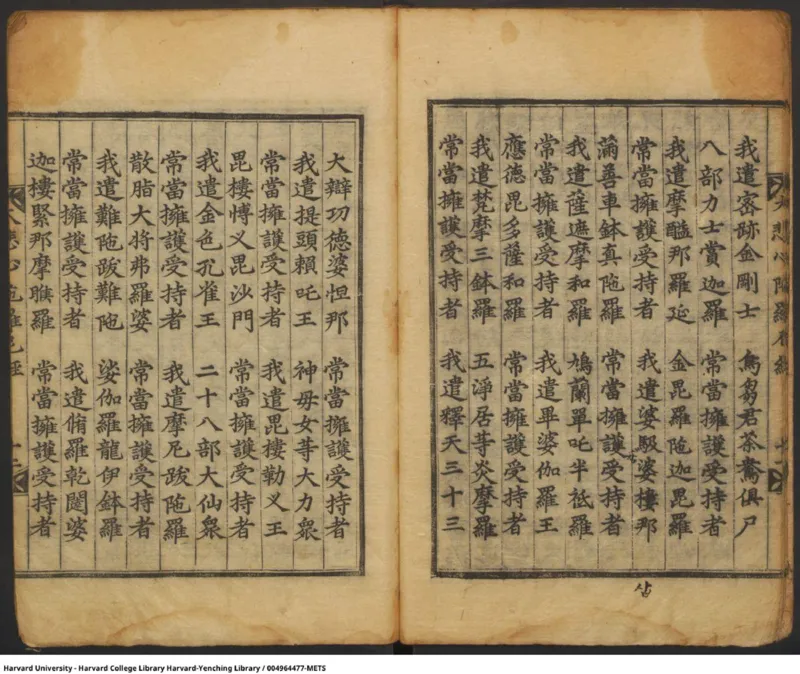 我遣密跡金剛士　烏芻君荼鴦俱尸
八部力士賞迦羅　常當擁護受持者
我遣摩醯那羅延　金毘羅陁迦毘羅
常當擁護受持者　我遣婆馺婆樓那
滿善車鉢真陁羅　常當擁護受持者
我遣薩遮摩和羅　鳩蘭單吒半祗羅
常當擁護受持者　我遣畢婆伽羅王
應德毘多薩和羅　常當擁護受持者
我遣梵摩三鉢羅　五淨居等炎摩羅
常當擁護受持者　我遣釋天三十三
삼
大辯功德婆怛那　常當擁護受持者
我遣提頭賴吒王　神母女等大力衆
常當擁護受持者　我遣毘樓勒叉王
毘樓愽叉毘沙門　常當擁護受持者
我遣金色孔雀王　二十八部大仙衆
常當擁護受持者　我遣摩尼跋陁羅
散脂大將弗羅婆　常當擁護受持者
我遣難陁跋難陁　娑伽羅龍伊鉢羅
常當擁護受持者　我遣脩羅乾闥婆
迦樓緊那摩睺羅　常當擁護受持者
Harvard University - Harvard College Library Harvard-Yenching Library / 004964477-METS